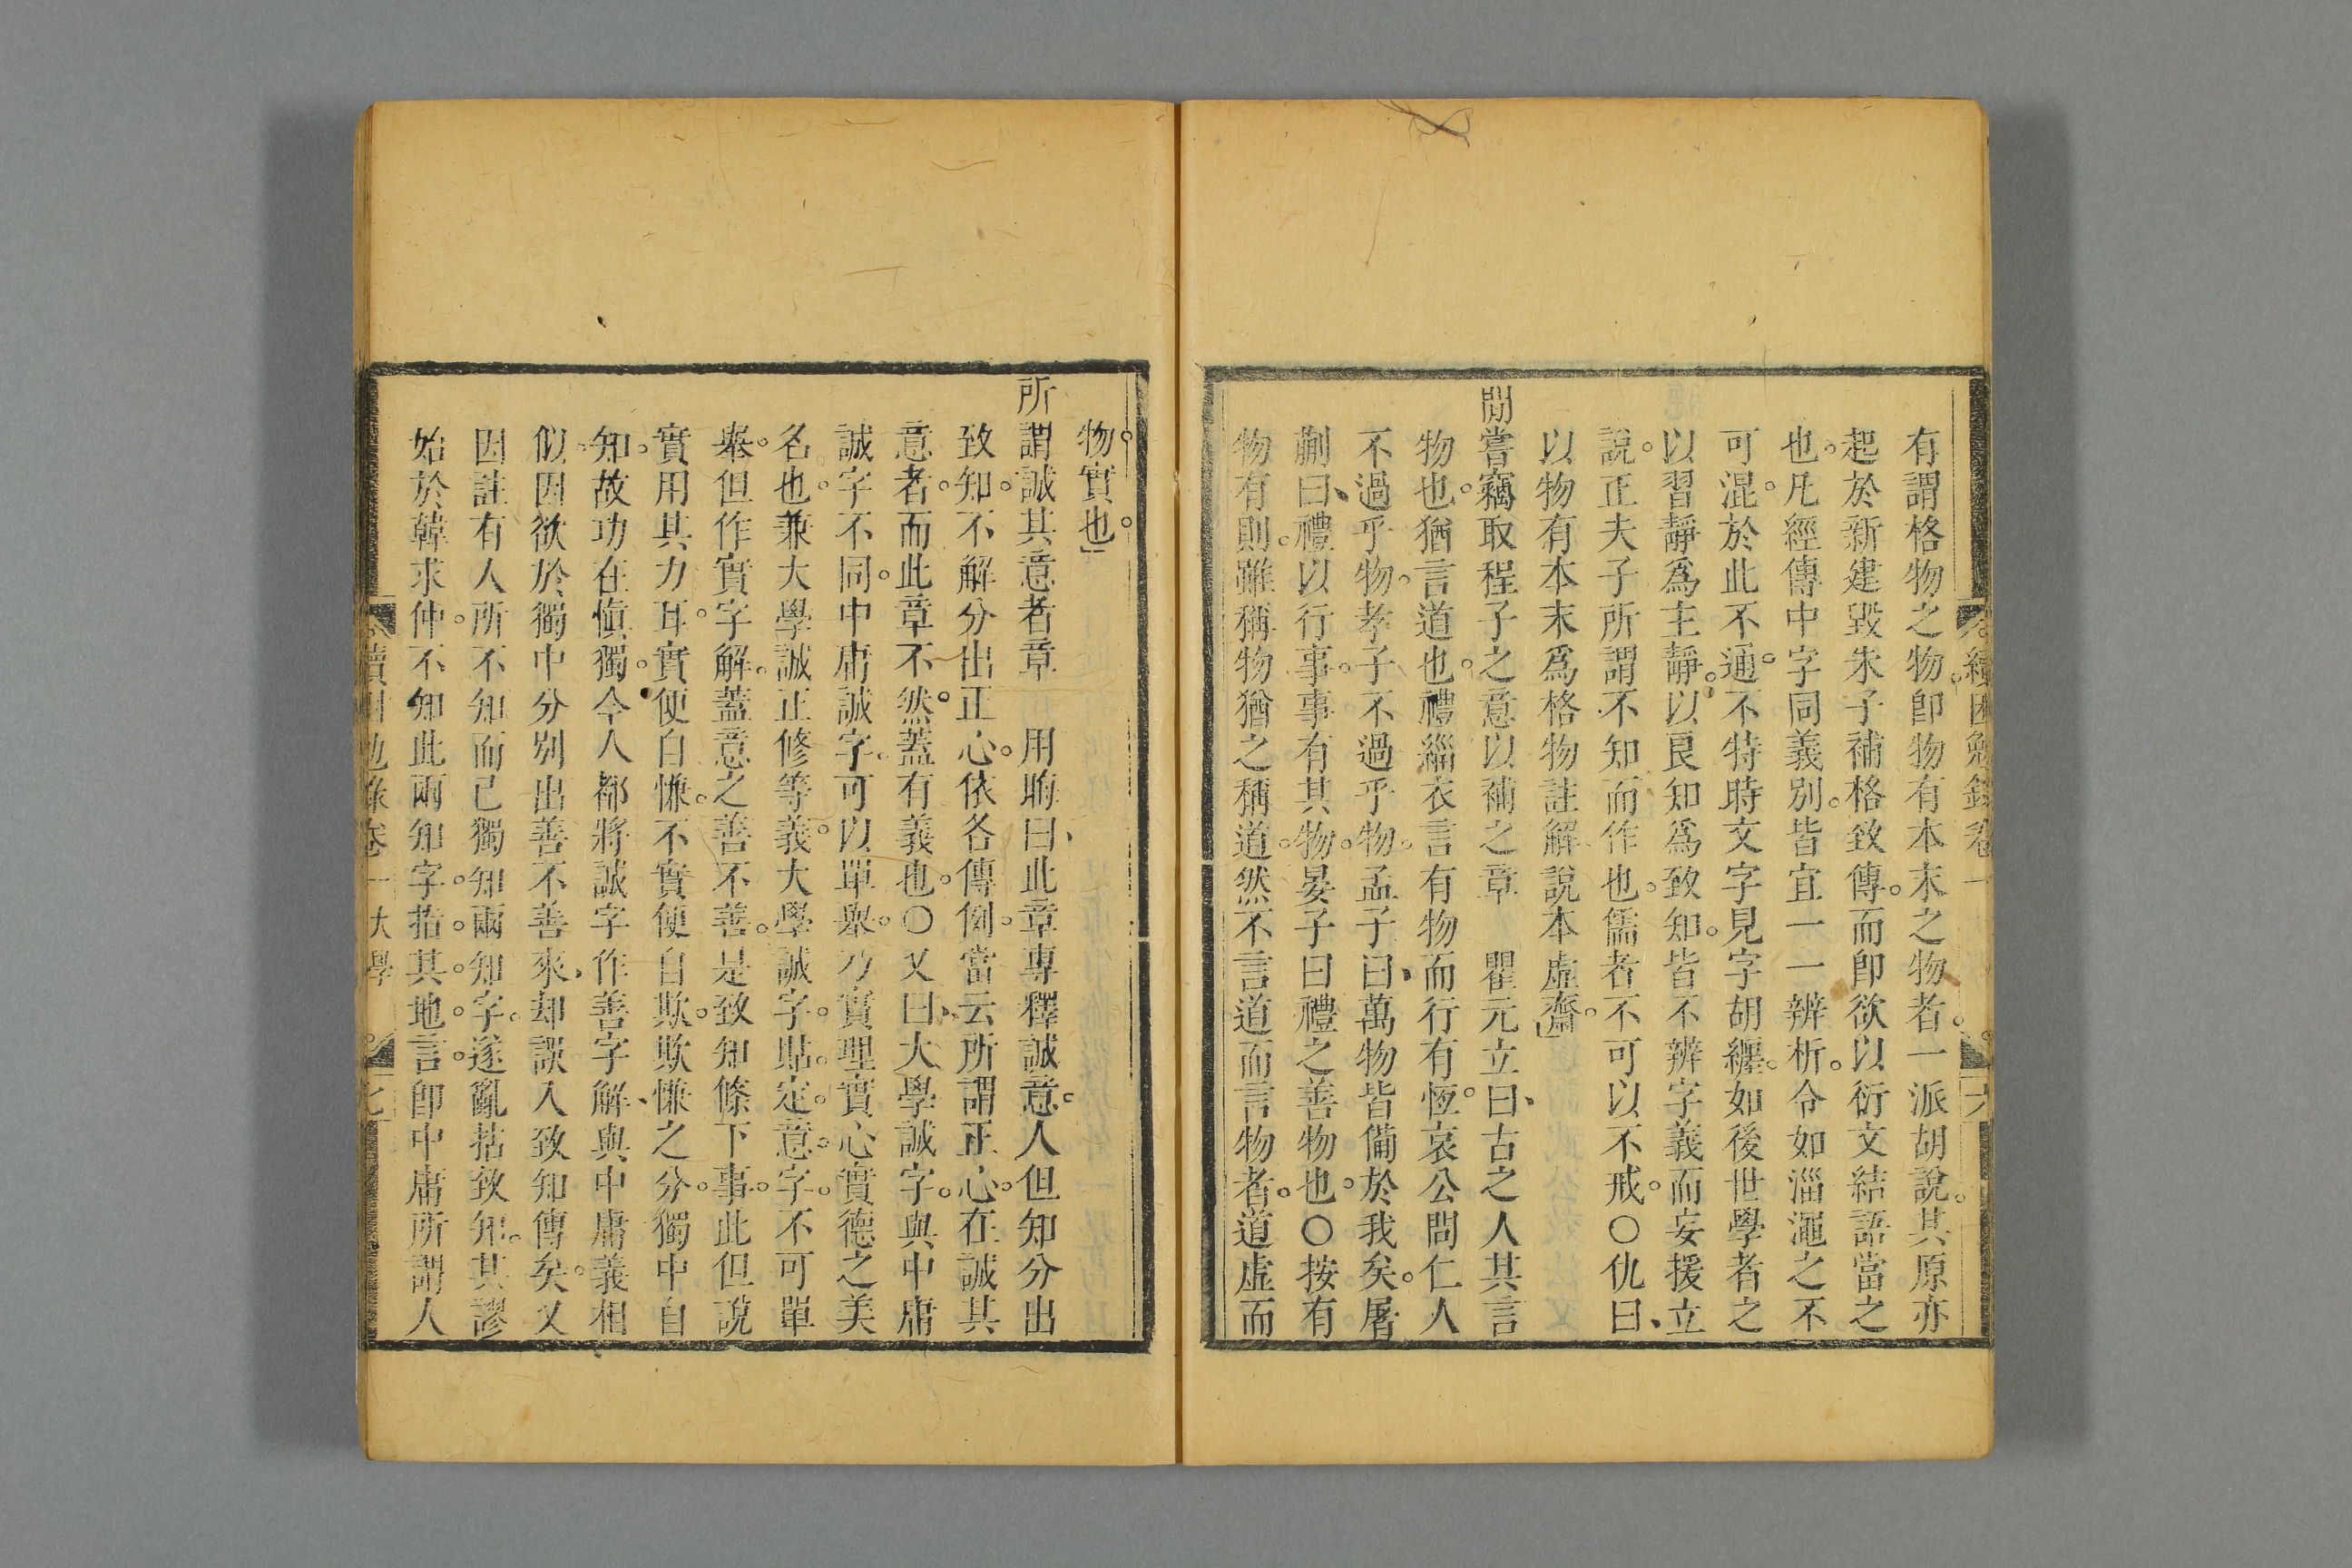 續困勉錄卷一
六
有謂格物之物卽物有本末之物者一派胡說其原亦
起於新建毀朱子補格致傳而卽欲以衍文結語當之
也凡經傳中字同義別皆宜一一辨析令如淄澠之不
可混於此不通不特時文字見字胡纏如後世學者之
以習靜爲主靜以良知爲致知皆不辨字義而妄援立
說正夫子所謂不知而作也儒者不可以不戒○仇曰
以物有本末爲格物註解說本虛齋
閒嘗竊取程子之意以補之章　瞿元立曰古之人其言
物也猶言道也禮緇衣言有物而行有恆哀公問仁人
不過乎物孝子不過乎物孟子曰萬物皆備於我矣屠
蒯曰禮以行事事有其物晏子曰禮之善物也○按有
物有則雖稱物猶之稱道然不言道而言物者道虛而
物實也
所謂誠其意者章　用晦曰此章專釋誠意人但知分出
致知不解分出正心依各傳例當云所謂正心在誠其
意者而此章不然蓋有義也○又曰大學誠字與中庸
誠字不同中庸誠字可以單舉乃實理實心實德之美
名也兼大學誠正修等義大學誠字貼定意字不可單
舉但作實字解蓋意之善不善是致知條下事此但說
實用其力耳實便自慊不實便自欺欺慊之分獨中自
知故功在愼獨今人都將誠字作善字解與中庸義相
似因欲於獨中分別出善不善來却誤入致知傳矣又
因註有人所不知而己獨知兩知字遂亂拈致知其謬
始於韓求仲不知此兩知字指其地言卽中庸所謂人
續困勉錄卷一大學
七